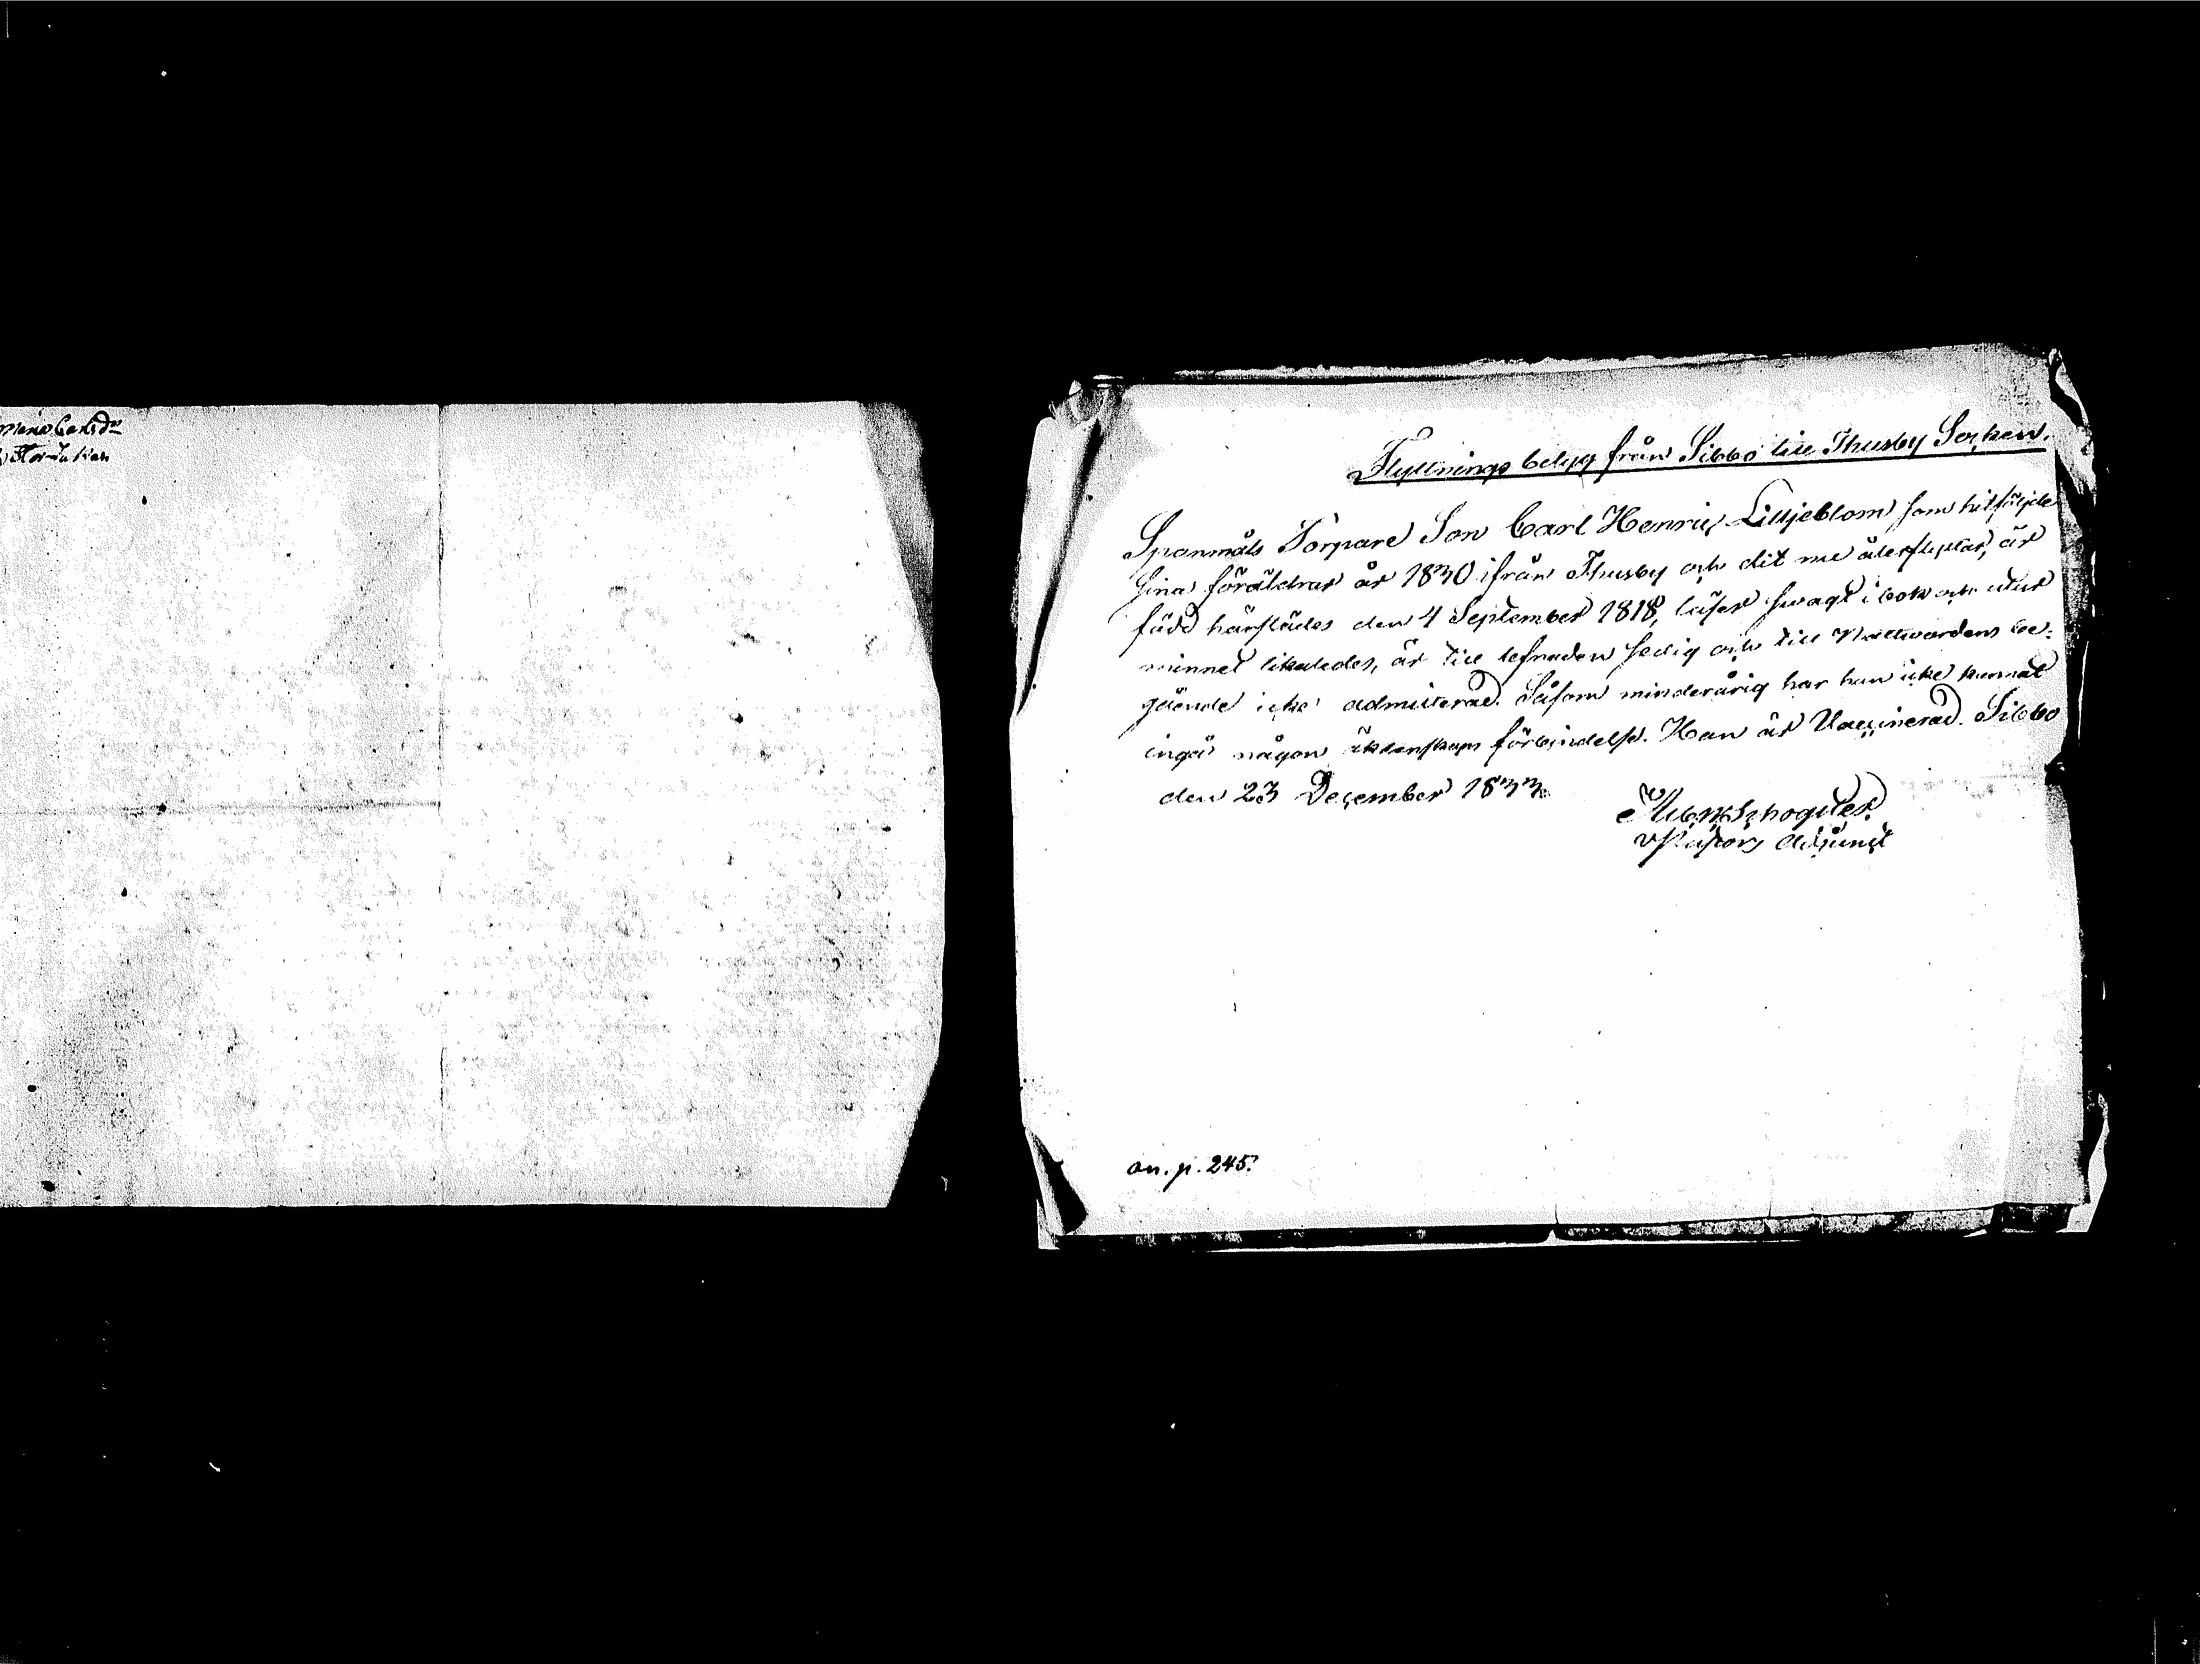 Maria Carlsdr
Flyttnings betyg från Sibbo till Thusby Socken.
Spanmåls Torpare Son Carl Henric Liljeblom, som hitföljde
sina föräldrar år 1830 ifrån Thusby och dit nu återflyttar, är
född härstädes den 4 September 1818, läser swagt i bok och utur
minnet likaledes, är till lefnaden sedig och till Nattwardens be-
gående icke admitterad. Såsom minderårig har han icke kunnat
ingå någon äktenskaps förbindelse. Han är Vaccinerad. Sibbo
den 23 December 1833.
Pastors Adjunct
an. p. 245.